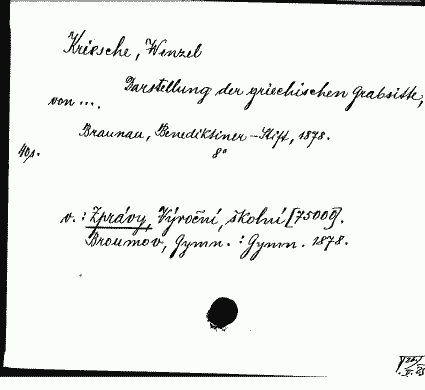 Kriesche, Wenzel
Darstellung der griechischen Grabsitte,
von ....
Braunau, Benediktiner-Stift, 1878.
40s. 8°
v. : Zprávy, Výroční, školní [75000].
Broumov, Gymn. : Gymn. 1878.